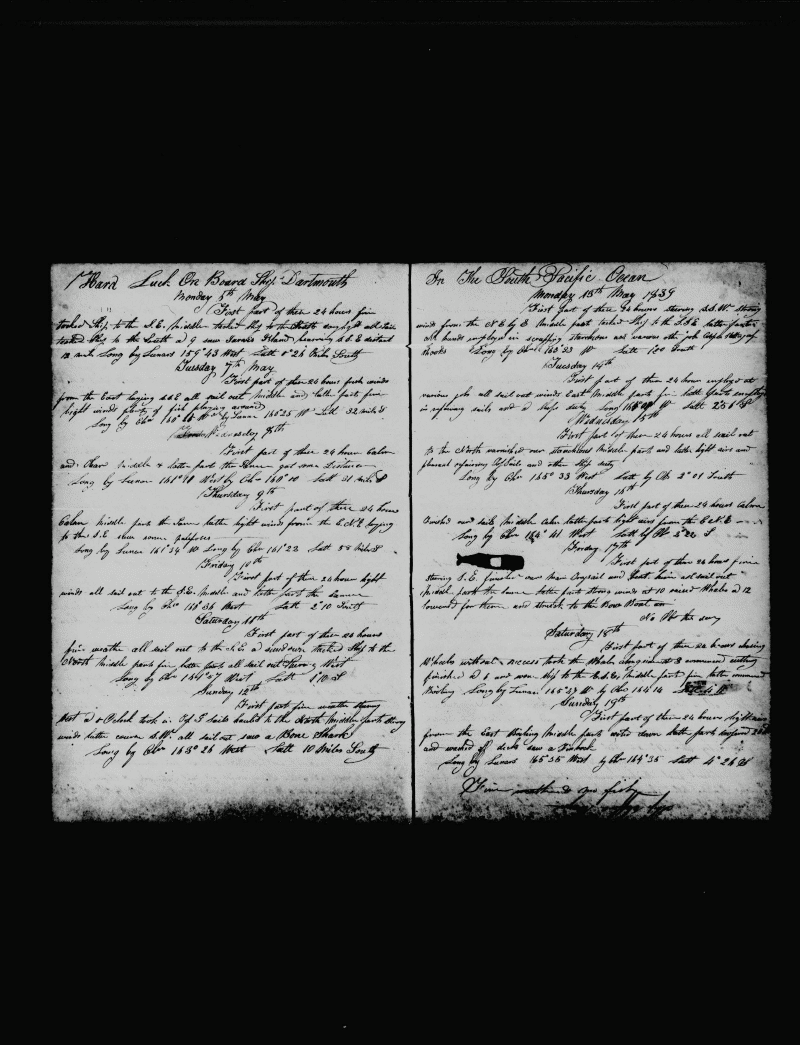 Hard Luck On Board Ship Dartmouth
Monday 6th May
First part of these 24 hours fine
tacked Ship to the S.E. Middle tacked Ship to the daylight all sail
tacked Ship to the South at 9 saw Jarvis Island bearing S.E. distant
12 mile Long by Lunars 159°43 West Latt 0°26 Miles South
Tuesday 7th May
First part of these 24 hours fresh winds
from the East laying S&E all sail out Middle and latter parts fine
light winds plenty of fish playing around
Long by Chr 160°16 W by Lunar 160°25 W Latt 32 mile S
Wednesday 8th
First part of these 24 hours Calm
and Clear Middle & latter part the Same got some
Long by Lunar 161°10 West by Chr 160°10 Latt 31 mile S
Thursday 9th
First part of these 24 hours
Calm Middle part the Same latter light winds from the E.N.E
to the S.E. saw some
Long by Lunar 161°34 Long by Chr 161°22 Latt 58 Miles S
Friday 10th
First part of these 24 hours light
winds all sail out to the S.E. Middle and latter part the same
Long by Chr 163°36 West Latt 2°10 South
Saturday 11th
First part of these 24 hours
fine weather all sail out to the S.E. at sundown tacked Ship to the
North Middle parts fine latter parts all sail out West
Long by Chr 164°07 West Latt 1°10 S
Sunday 12th
First part fine weather strong
at 8 Oclock took in sails hauled to the North Middle parts strong
winds latter course S.W. all sail out saw a Bone Shark
Long by Chr 165°26 West Latt 10 Miles South
In The South Pacific Ocean
Monday 13th May 1839
First part of these 24 hours steering S.S.W. strong
winds from the N.E by E Middle parts tacked Ship to the S.E. latter parts
all hands employed in scrapping and various other jobs
Long by Chr 165°23 W Latt 1°00 South
Tuesday 14th
First part of these 24 hours employed at
various jobs all sail out winds East Middle parts fine latter parts employed
in repairing sails and a Ships duty Long W Latt
Wednesday 15th
First part of these 24 hours all sail out
to the North varnished our Middle parts and latter light airs and
pleasant repairing and other Ships duty
Long by Chr 165°33 West Latt by Ob 2°01 South
Thursday 16th
First part of these 24 hours Calm
our sails Middle Calm latter parts light airs from the E.N.E
Long by Chr 164°41 West Latt by Ob 2°22 S
Friday 17th
First part of these 24 hours fine
steering S.E. finished our new and bent him all sail out
Middle parts the same latter parts strong winds at 10 raised Whales at 12
lowered for them and struck to the Bow Boat
No Ob the
Saturday 18th
First part of these 24 hours chasing
Whales without success took the Whale along side at 3 commenced cutting
finished at 6 and wore Ship to the Middle parts fine latter commenced
Boiling Long by Lunar 165°27 W by Chr 164°14
Sunday 19th
First part of these 24 hours light airs
from the East Boiling Middle parts down latter parts
and washed off decks saw a Finback
Long by Lunars 165°35 West by Chr 164°35 Latt 4°26 S
Fine